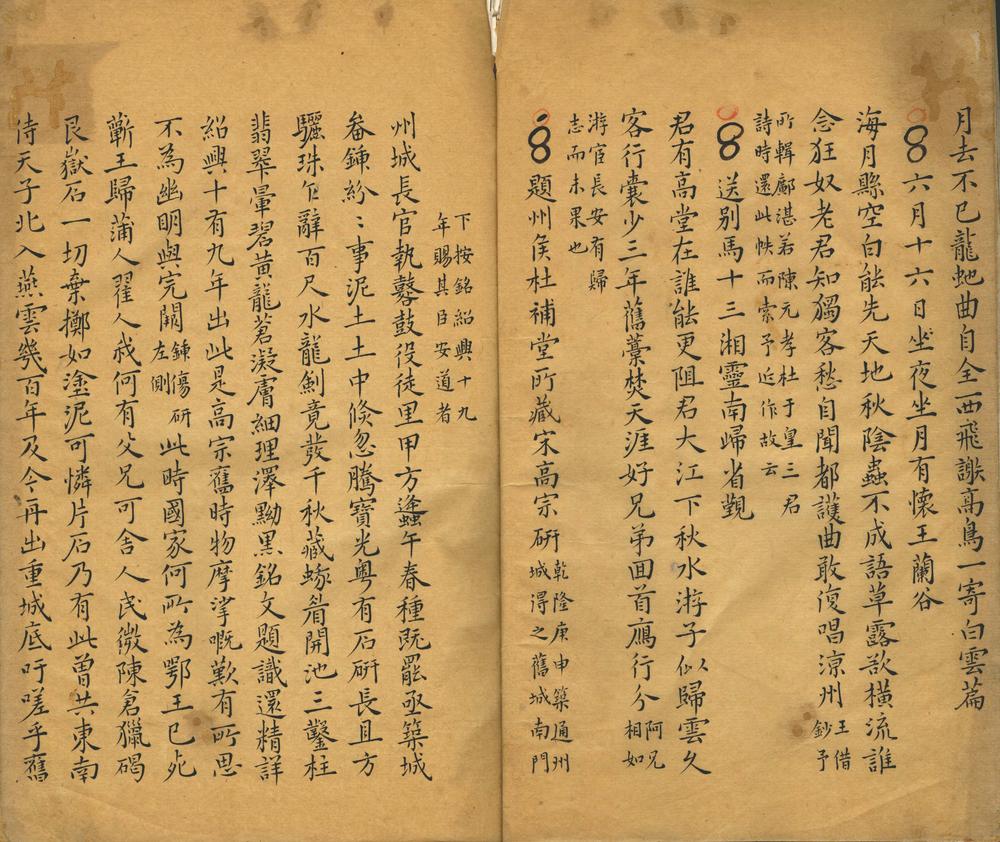 月去不已龍虵曲自全一西飛謝高鳥一寄白雲篇
六月十六日坐夜坐月有懷王蘭谷
海月縣空白能先天地秋陰蟲不成語草露欲橫流誰
念狂奴老君知獨客愁自聞都護曲敢復唱涼州王借鈔予
所輯鄺湛若陳元孝杜于皇三君
詩時還此帙而索予近作故云
送别馬十三湘靈南歸省觀
君有高堂在誰能更阻君大江下秋水游子似歸雲久
客行囊少三年舊藁焚天涯好兄弟回首鴈行分阿兄相如
游宦長安有歸
志而未果也
題州矦杜補堂所藏宋高宗研乾隆庚申築通州城得之舊城南門
下按銘紹興十九
年賜其臣安道者
州城長官執鼛鼓役徒里甲方逢午春種既罷亟築城
畚鍤紛〻事泥土土中倐忽騰寶光粤有石研長且方
驪珠乍辭百尺水龍劎竟發千秋藏蜍肴開池三鑿柱
翡翠暈碧黃龍蒼凝膚細理澤黝黑銘文題識還精詳
紹興十有九年出此是高宗舊時物摩挲嘅歎有所思
不為幽明與完闕鍤傷研左側此時國家何所為鄂王已死
蘄王歸蒲人翟人戕何有父兄可舍人民微陳倉獵碣
艮嶽石一切棄擲如塗泥可憐片石乃有此曾共東南
侍天子北入燕雲幾百年及今再出重城底吁嗟乎舊